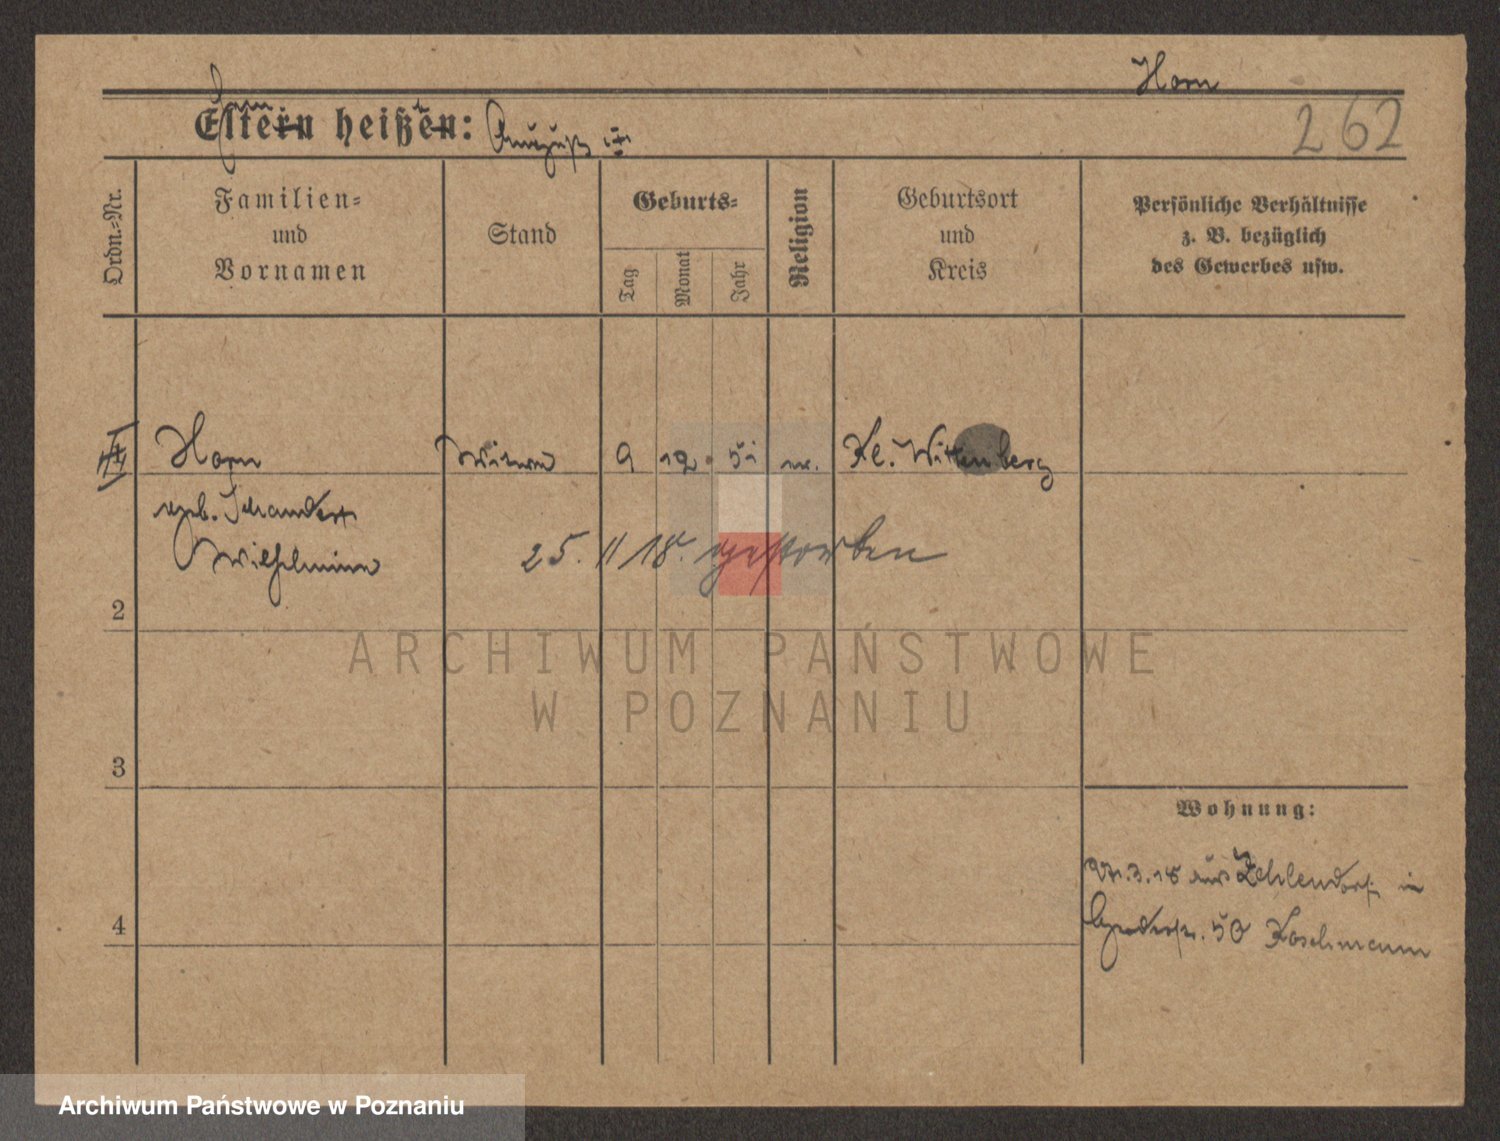 Horn
262
Eltern heißen: August
Ordn.-Nr.
Familien-
und
Vornamen
Stand
Geburts-
Tag
Monat
Jahr
Religion
Geburtsort
und
Kreis
Persönliche Verhältnisse
z. B. bezüglich
des Gewerbes usw.
Horn Witwe 9 12 51 ev. Kl. Wittenberg
geb. Schandert
Wilhelmine
25. 11 18. gestorben
2
3
4
Wohnung:
27.3.18 aus Zehlendorf in
50 Koschmann
ARCHIWUM PAŃSTWOWE
W POZNANIU
Archiwum Państwowe w Poznaniu